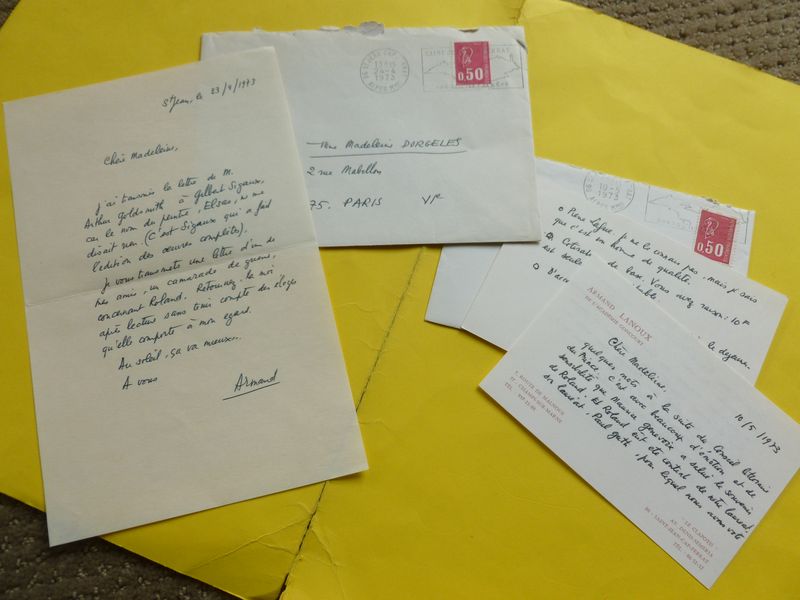 St Jean, le 23/4/1973
Chère Madeleine,
J'ai transmis la lettre de M.
Arthur Goldsmith à Gilbert Sigaux,
car le nom du peintre, Elsas, ne me
disait rien. (C'est Sigaux qui a fait
l'édition des œuvres complètes).
Je vous transmets une lettre d'un de
mes amis, un camarade de guerre,
concernant Roland. Retournez-la moi
après lecture sans tenir compte des éloges
qu'elle comporte à mon égard.
Au soleil, ça va mieux.
A vous
Armand
1973
0.50
Madeleine DORGELES
2 rue Mabillon
75. PARIS VIe
10-5
1973
0.50
Pierre Lafue, je ne le connais pas, mais je sais
que c'est un homme de qualité.
Cotisation de base. Vous avez raison: 10 F
est seule
ARMAND LANOUX
DE L'ACADÉMIE GONCOURT
10/5/1973
Chère Madeleine,
quelques mots à la suite du Conseil littéraire
de Monaco. C'est avec beaucoup d'émotion et de
sensibilité que Maurice Genevoix a salué le souvenir
de Roland. Et Roland eut été content de notre lauréat,
Paul Guth, pour lequel nous avons voté
ROUTE DE MALNOUE
77 - CHAMPS-SUR-MARNE
LE CLAPOTIS
AV. DENIS SEMERIA
06 - SAINT-JEAN-CAP-FERRAT